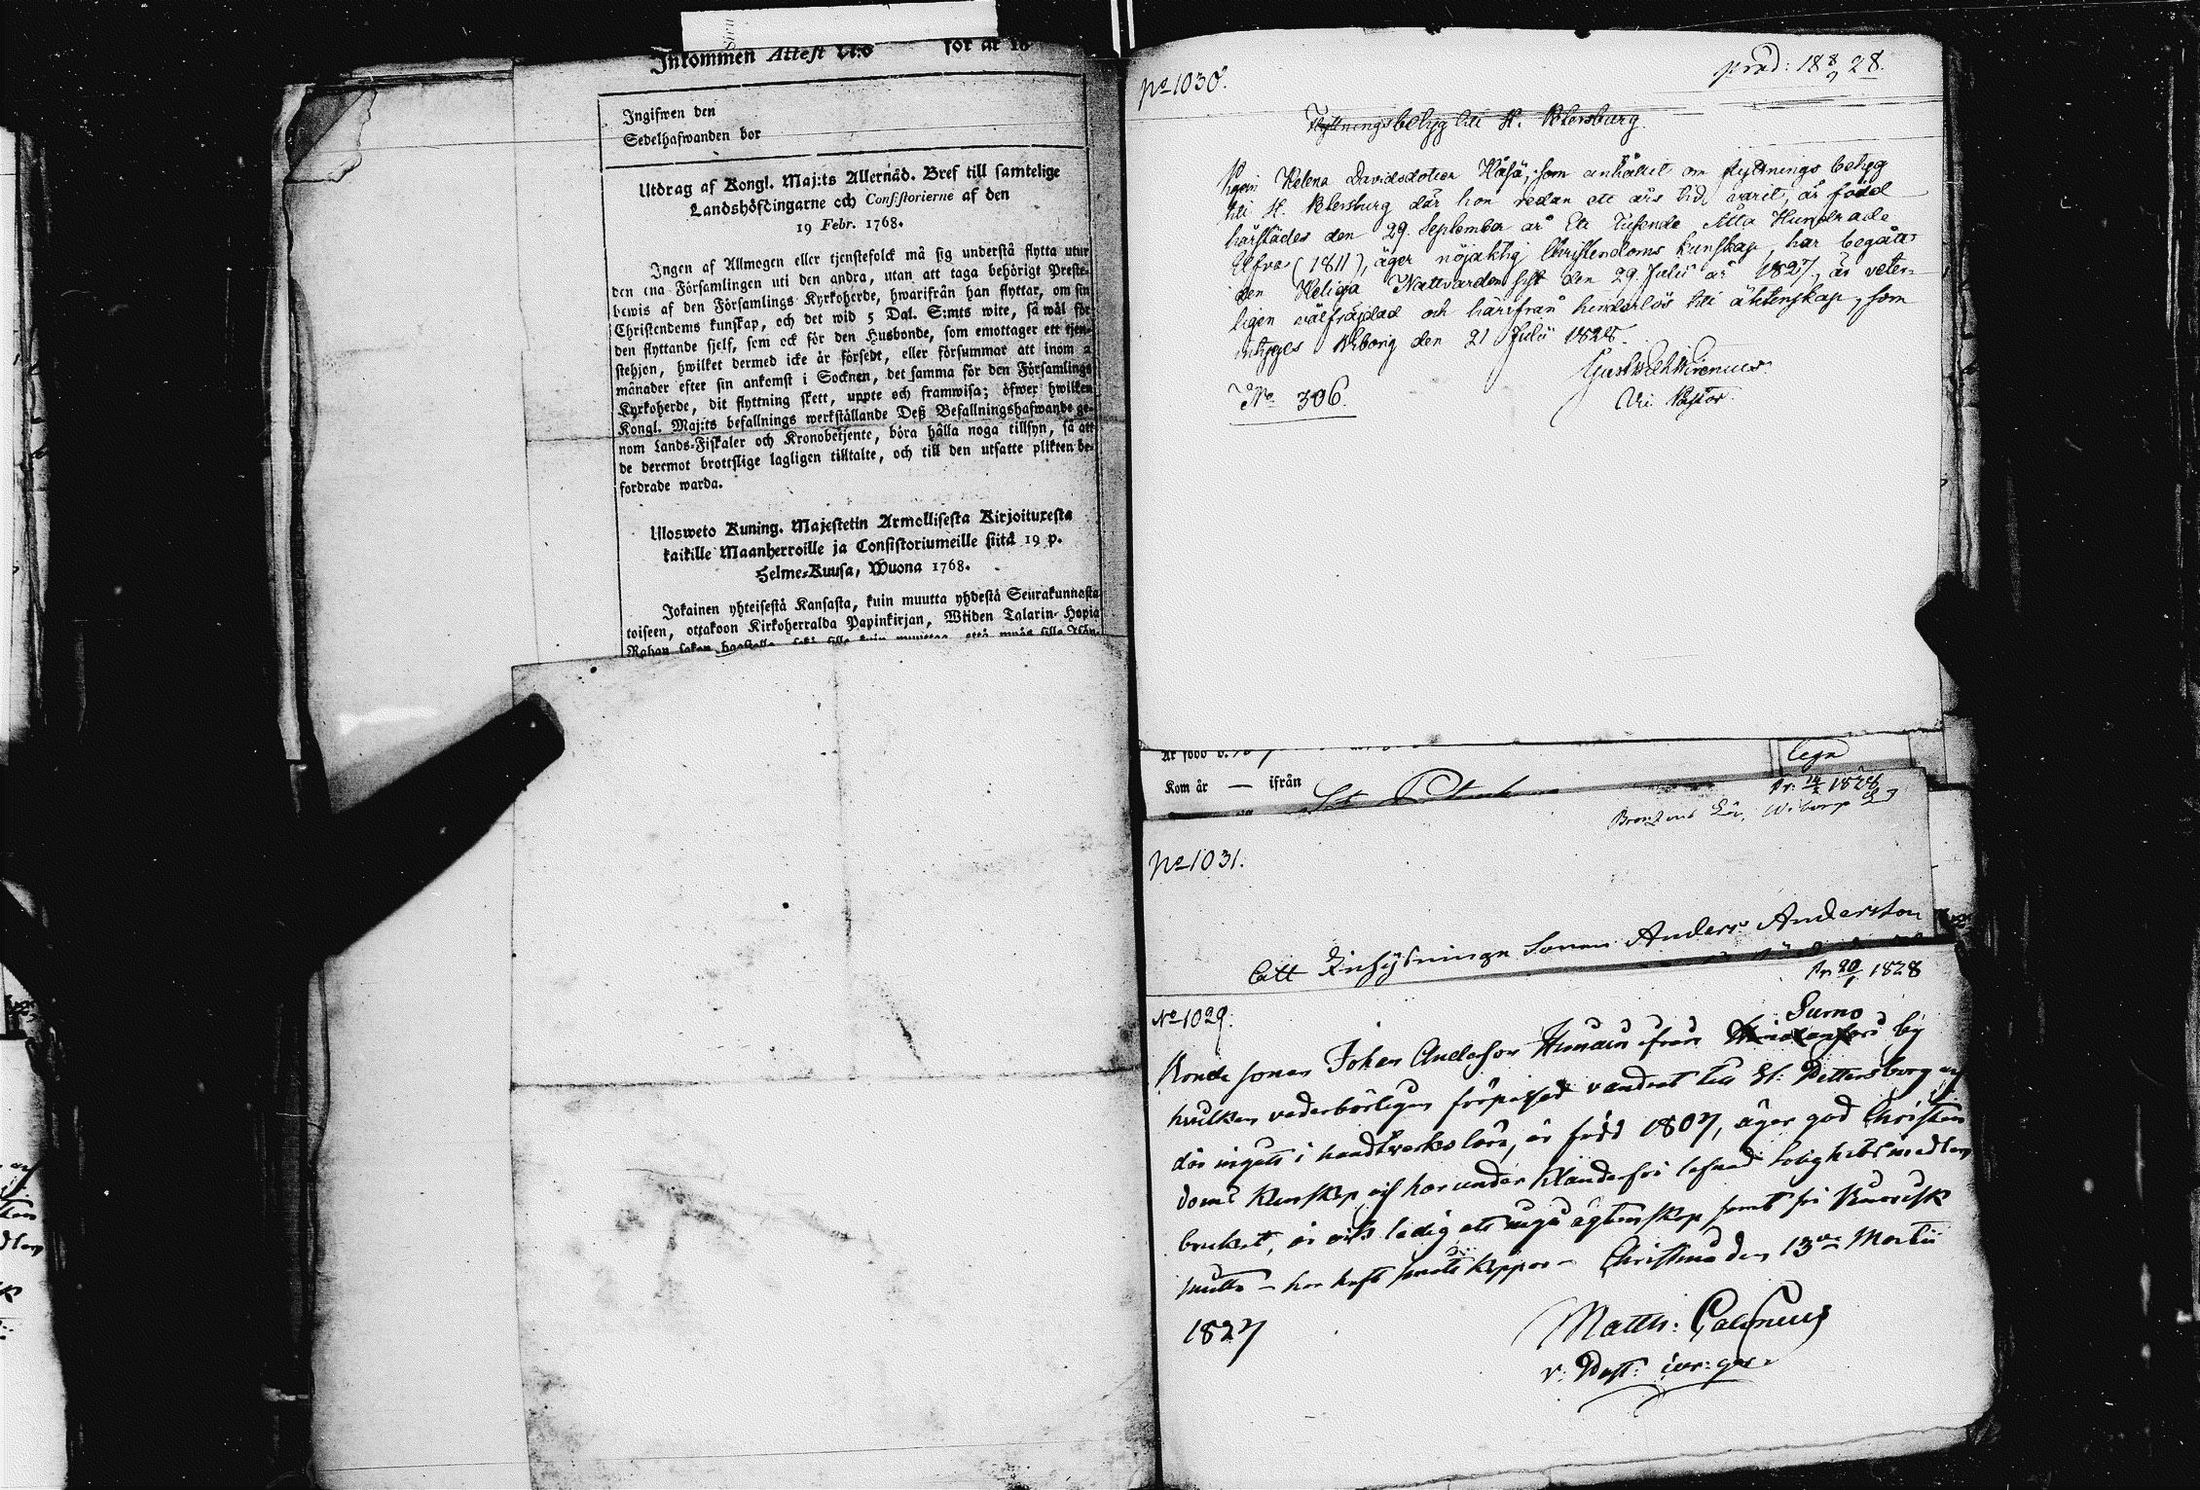 Inkommen Attest N:o för år 18
Ingifwen den
Sedelhafwanden bor
Utdrag af Kongl. Maj:ts Allernåd. Bref till samtelige
Landshöfdingarne och Consistorierne af den
19 Febr. 1768.
Ingen af Allmogen eller tjenstefolck må sig understå flytta utur
den ena Församlingen uti den andra, utan att taga behörigt Preste-
bewis af den Församlings Kyrkoherde, hwarifrån han flyttar, om sin
Christendoms kunskap, och det wid 5 Dal. S:mts wite, så wäl för
den flyttande sjelf, som ock för den Husbonde, som emottager ett tjen-
stehjon, hwilket dermed icke är försedt, eller försummar att inom 2
månader efter sin ankomst i Socknen, det samma för den Församlings
Kyrkoherde, dit flyttning skett, uppte och framwisa; öfwer hwilken
Kongl. Maj:ts befallnings werkställande Deß Befallningshafwande ge-
nom Lands-Fiskaler och Kronobetjente, böra hålla noga tillsyn, så att
de deremot brottslige lagligen tilltalte, och till den utsatte plikten be-
fordrade warda.
Ulosweto Kuning. Majestetin Armollisesta Kirjoituxesta
kaikille Maanherroille ja Consistoriumeille siitä 19 p.
Helme-Kuusa, Wuona 1768.
Jokainen yhteisestä Kansasta, kuin muutta yhdestä Seurakunnasta
toiseen, ottakoon Kirkoherralda Papinkirjan, Wiiden Talarin Hopia
Rahan sakon
No 1030.
prod: 18 8/9 28.
Flyttningsbetyg till St. Petersburg.
Pigan Helena Davidsdotter Käsä, som anhållit om flyttnings betyg
till St. Petersburg där hon redan ett års tid varit, är född
härstädes den 29. September år Ett Tusende Åtta Hundrade
Elfva (1811), äger nöjaktig Christendoms kunskap, har begått
den Heliga Nattvarden sist den 29 Julii år 1827, är veter-
ligen välfräjdad och härifrån hinderlös till äktenskap, som
intygas Wiborg den 21 Julii 1828.
Vice Pastor.
No 306.
Kom år — ifrån St. Petersb
Pr: 14/2 1828
No 1031.
Att Inhysningen Sonen Anders Andersson
Pr 20/1 1828
No 1029.
Sumo
Bonde sonen Johan Andersson Himain ifrån by
hvilken vederbörligen förpassad vandrat till St: Pettersburg och
där ingått i handtverks lära, är född 1807, äger god Christen
doms kunskap och har under klanderfri lefnad Salighets medlen
brukat, är och ledig att ingå ägtenskap samt fri
smitta – har haft koppor – Christina den 13de Martii
1827
Matth: Galenius
v: Past: